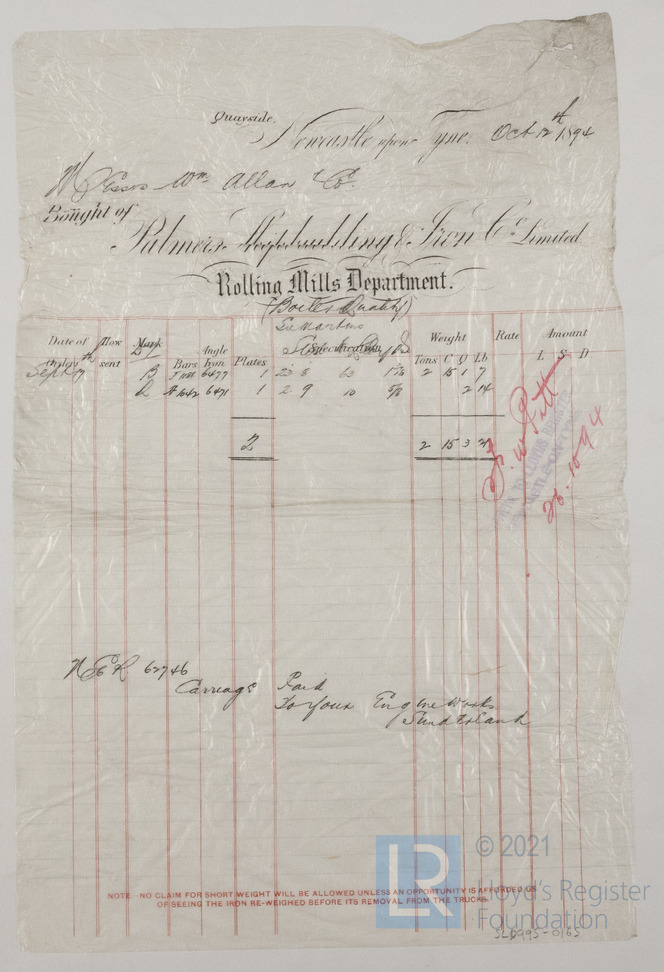 Quayside.
Newcastle upon Tyne. Oct 12th 1894
Messrs Wm Allan & Co.
Bought of
Palmers Shipbuilding & Iron Co Limited.
Rolling Mills Department.
(Boiler Quality)
Date of Order How sent Mark Bars Angle Iron Plates Specification Weight Rate Amount
Tons C Q Lb L S D
Sept 7th B 6477 1 2 15 1 7
R 1642 6471 1 2 9 10 5/8 2 14
2 2 15 3 21
F. W. Pitt
26.10.94
N E R 62746
Carriage Paid
To your Engine Works
Sunderland
NOTE - NO CLAIM FOR SHORT WEIGHT WILL BE ALLOWED UNLESS AN OPPORTUNITY IS AFFORDED US
OF SEEING THE IRON RE-WEIGHED BEFORE ITS REMOVAL FROM THE TRUCKS.
LR © 2021
Lloyd's Register
Foundation
SLD995-0165